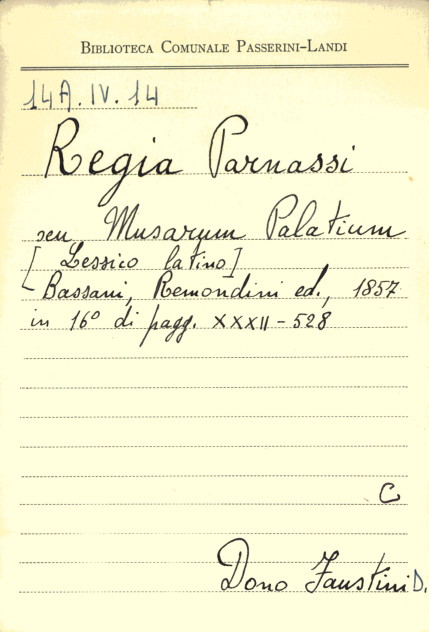 BIBLIOTECA COMUNALE PASSERINI-LANDI
14A.IV.14
Regia Parnassi
seu Musarum Palatium
[Lessico latino]
Bassani, Remondini ed., 1857
in 16° di pagg. XXXII-528
C
Dono Faustini D.